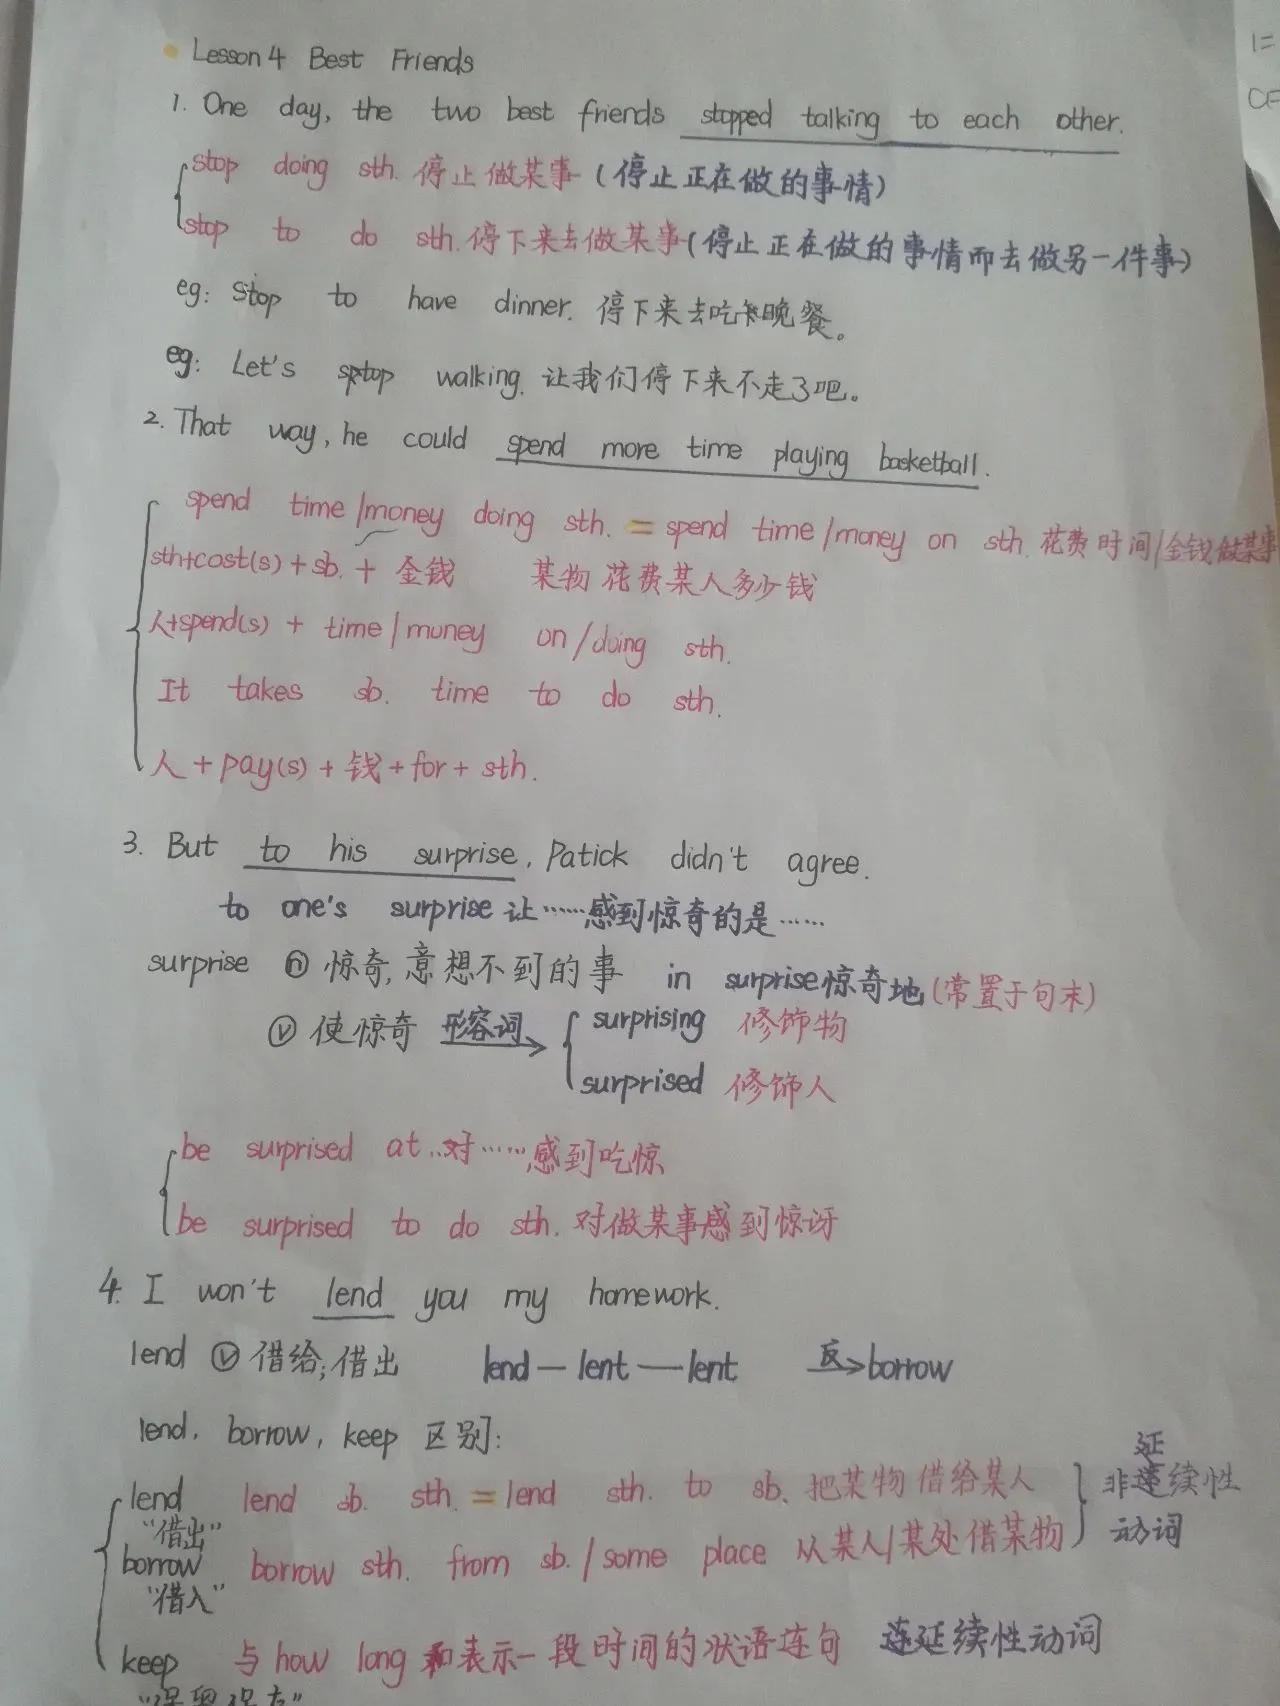 Lesson 4 Best Friends
1. One day, the two best friends stopped talking to each other.
stop doing sth. 停止做某事 (停止正在做的事情)
stop to do sth. 停下来去做某事(停止正在做的事情而去做另一件事)
eg: Stop to have dinner. 停下来去吃晚餐。
eg: Let's stop walking. 让我们停下来不走了吧。
2. That way, he could spend more time playing basketball.
spend time/money doing sth. = spend time/money on sth. 花费时间/金钱做某事
sth+cost(s)+sb.+金钱 某物花费某人多少钱
人+spend(s)+time/money on/doing sth.
It takes sb. time to do sth.
人+pay(s)+钱+for+sth.
3. But to his surprise, Patick didn't agree.
to one's surprise 让……感到惊奇的是……
surprise n 惊奇,意想不到的事 in surprise惊奇地(常置于句末)
v 使惊奇 形容词→ surprising 修饰物
surprised 修饰人
be surprised at..对……感到吃惊
be surprised to do sth. 对做某事感到惊讶
4. I won't lend you my homework.
lend v 借给;借出 lend—lent—lent 反→borrow
lend, borrow, keep 区别:
lend lend sb. sth. = lend sth. to sb. 把某物借给某人 非延续性
"借出" 动词
borrow borrow sth. from sb./some place 从某人/某处借某物
"借入"
keep 与how long和表示一段时间的状语连句 延续性动词